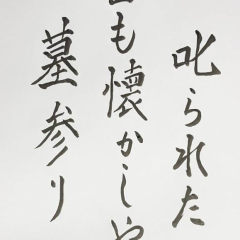 叱られた
も懐かしや
墓参り